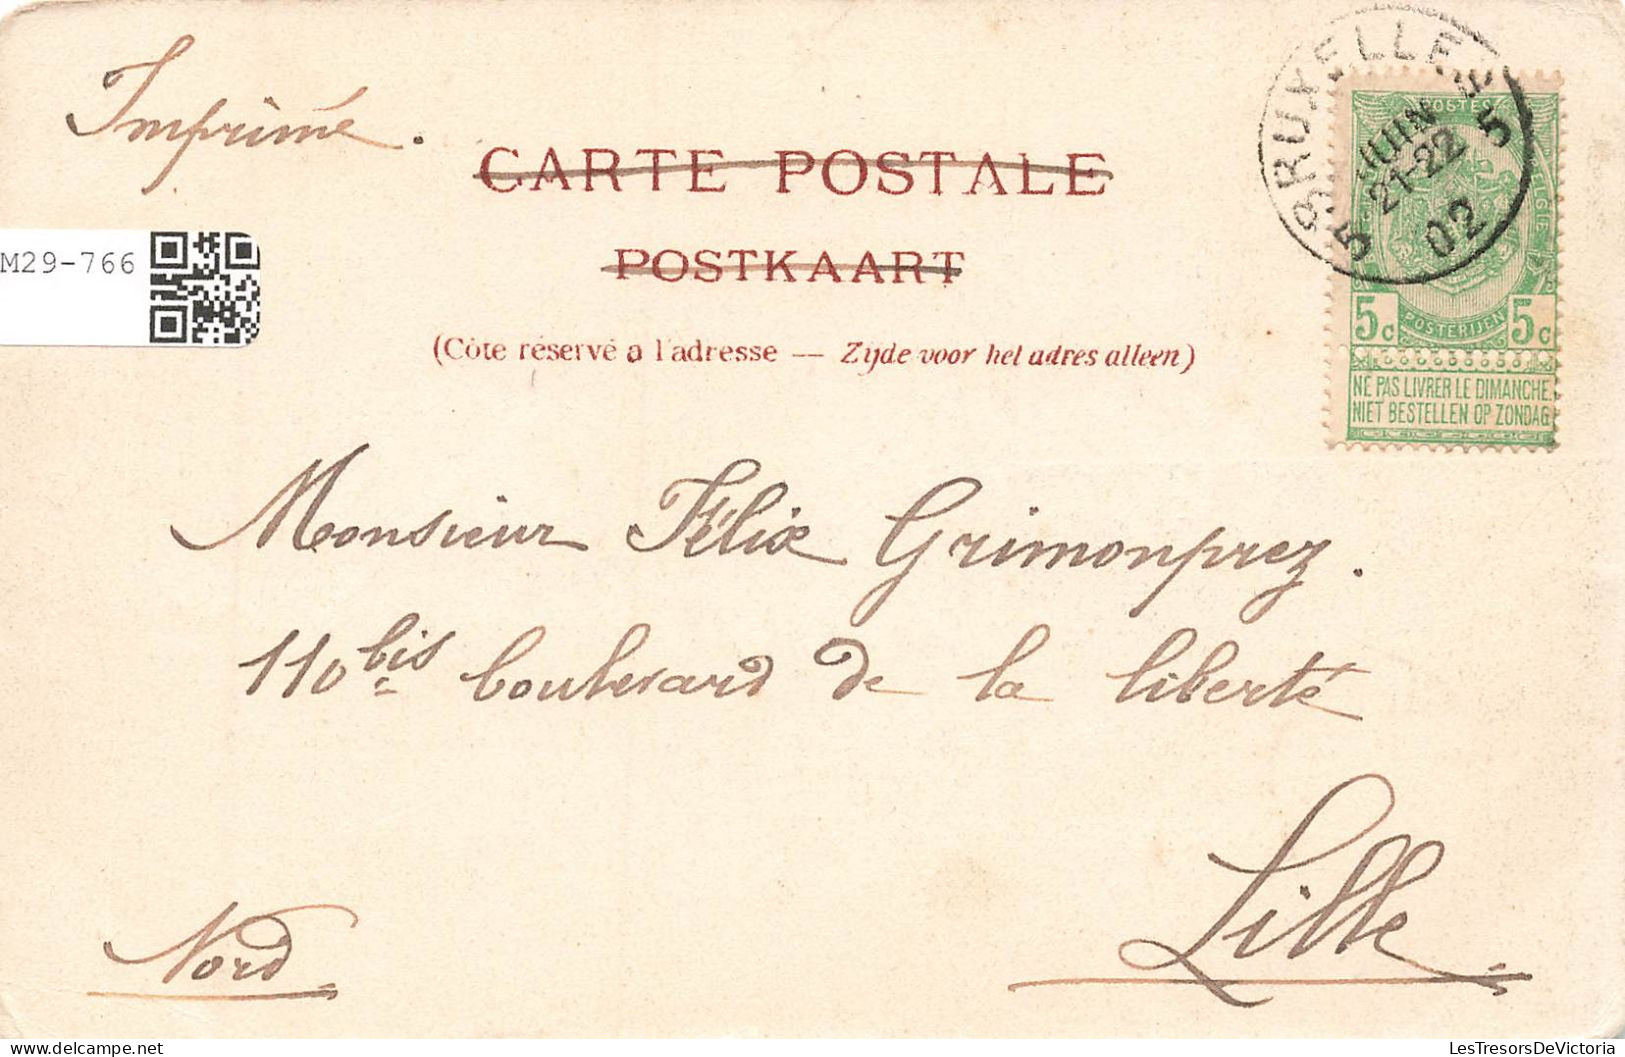 Imprimé.
CARTE POSTALE
POSTKAART
(Côte réservé a l'adresse — Zijde voor het adres alleen)
M29-766
BRUXELLES 5
5 JUIN
21-22
02
POSTES
5c POSTERIJEN 5c
NE PAS LIVRER LE DIMANCHE
NIET BESTELLEN OP ZONDAG
Monsieur Félix Grimonprez.
110 bis boulevard de la liberté
Lille
Nord
LesTresorsDeVictoria